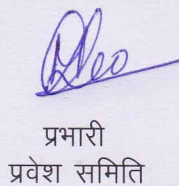 प्रभारी
प्रवेश समिति